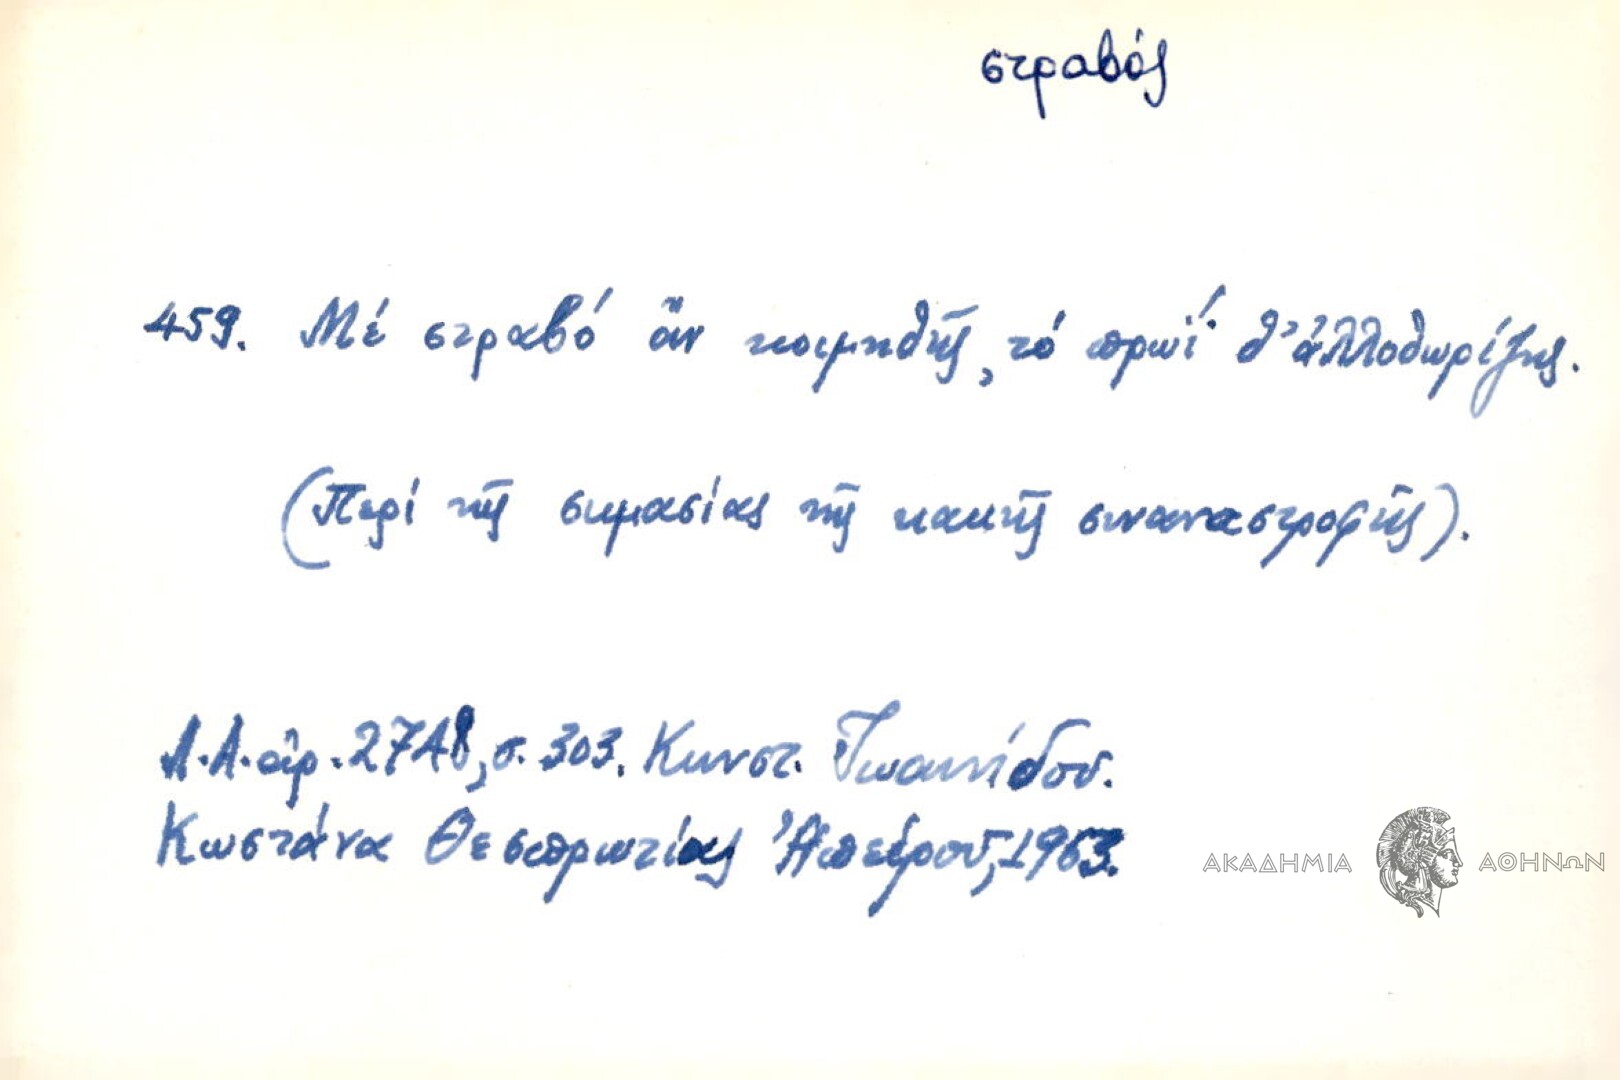 στραβός
459. Μέ στραβό ἄν κοιμηθῆς, τό πρωΐ θ' ἀλλοθωρίζης.
(Περί τῆς σημασίας τῆς κακῆς συναναστροφῆς).
Λ.Α. ἀρ. 2748, σ. 303. Κωνστ. Ἰωαννίδου.
Κωστάνα Θεσπρωτίας Ἠπείρου, 1963.
ΑΚΑΔΗΜΙΑ ΑΘΗΝΩΝ